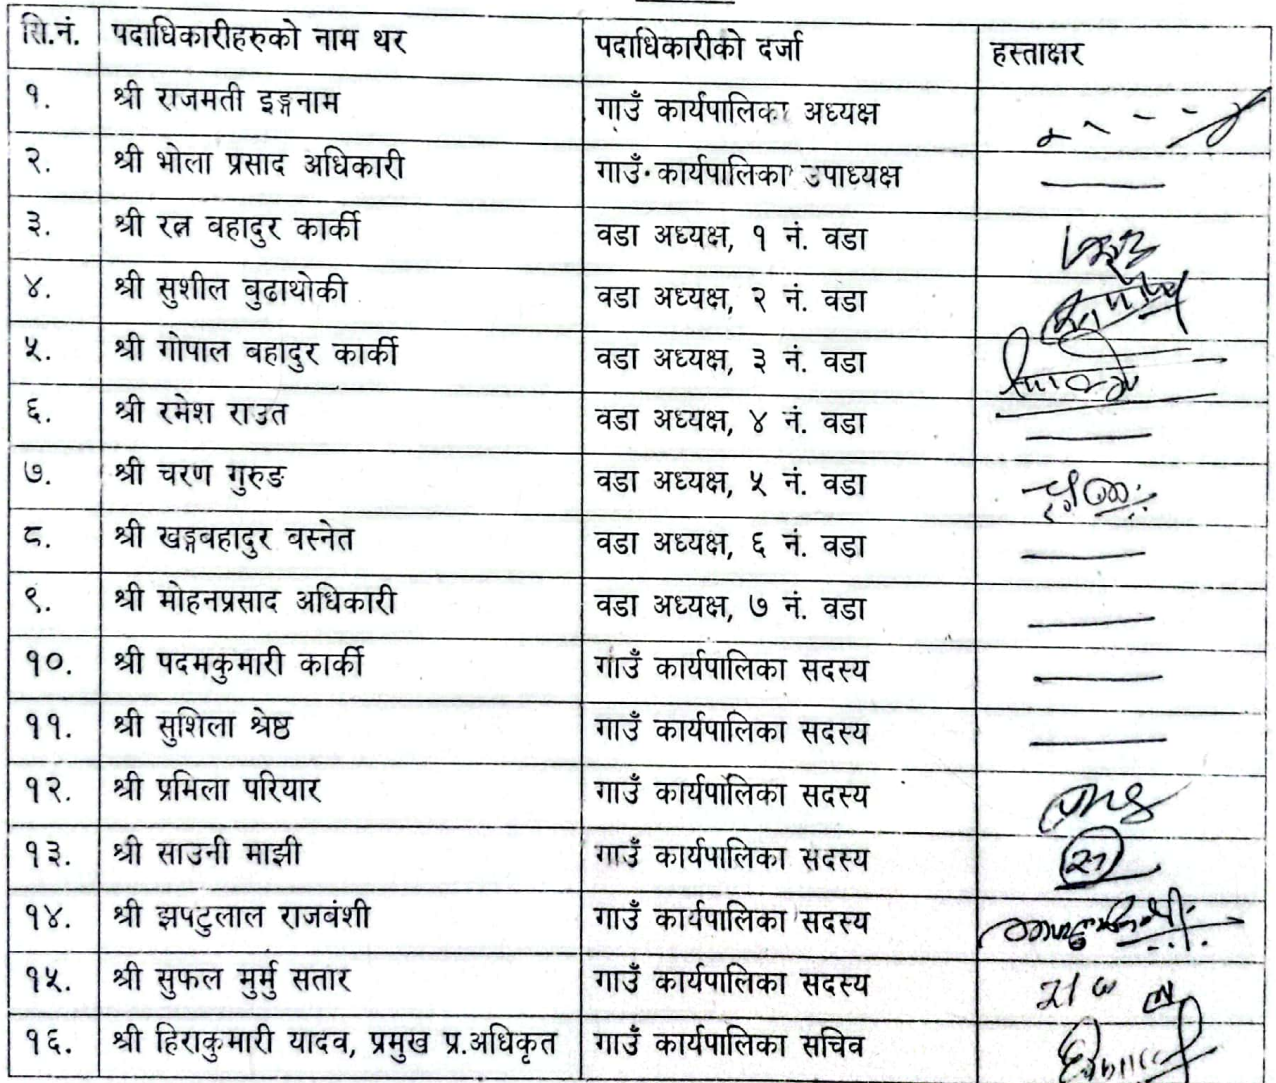 सि.नं. पदाधिकारीहरुको नाम थर पदाधिकारीको दर्जा हस्ताक्षर
१. श्री राजमती इङ्गनाम गाउँ कार्यपालिका अध्यक्ष
२. श्री भोला प्रसाद अधिकारी गाउँ कार्यपालिका उपाध्यक्ष
३. श्री रत्न वहादुर कार्की वडा अध्यक्ष, १ नं. वडा
४. श्री सुशील वुढाथोकी वडा अध्यक्ष, २ नं. वडा
५. श्री गोपाल वहादुर कार्की वडा अध्यक्ष, ३ नं. वडा
६. श्री रमेश राउत वडा अध्यक्ष, ४ नं. वडा
७. श्री चरण गुरुङ वडा अध्यक्ष, ५ नं. वडा
८. श्री खड्गवहादुर वस्नेत वडा अध्यक्ष, ६ नं. वडा
९. श्री मोहनप्रसाद अधिकारी वडा अध्यक्ष, ७ नं. वडा
१०. श्री पदमकुमारी कार्की गाउँ कार्यपालिका सदस्य
११. श्री सुशिला श्रेष्ठ गाउँ कार्यपालिका सदस्य
१२. श्री प्रमिला परियार गाउँ कार्यपालिका सदस्य
१३. श्री साउनी माझी गाउँ कार्यपालिका सदस्य
१४. श्री झपटुलाल राजबंशी गाउँ कार्यपालिका सदस्य
१५. श्री सुफल मुर्मु सतार गाउँ कार्यपालिका सदस्य
१६. श्री हिराकुमारी यादव, प्रमुख प्र.अधिकृत गाउँ कार्यपालिका सचिव